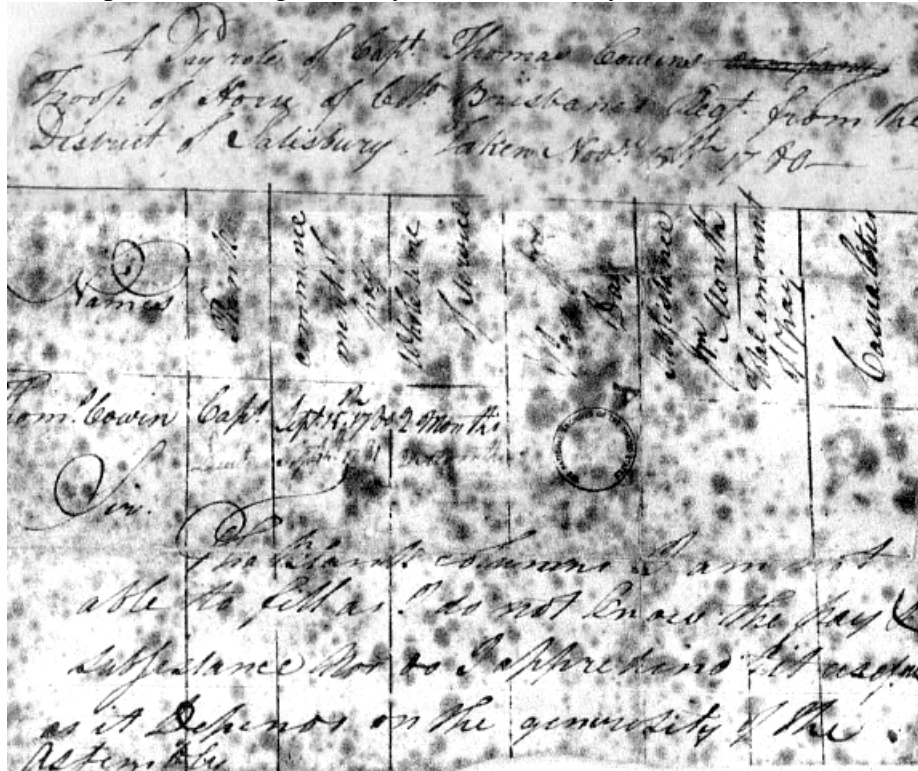 A Pay role of Capt. Thomas Cowins company
Troop of Horse of Coll. Brisbanes Regt. from the
District of Salisbury. Taken Novr. 15th 1780
Names
Rank
commence
ment of
pay
Whole time
of service
Pay per
Day
subsistance
per Month
Total amount
of pay
Casualties
Thoms. Cowin Capt. Sept. 15th 1780 2 Months
Sir.
The blank columns I am not
able to fill as I do not know the pay &
subsistance Nor do I apprehend it
as it Depends on the generosity of the
Assembly